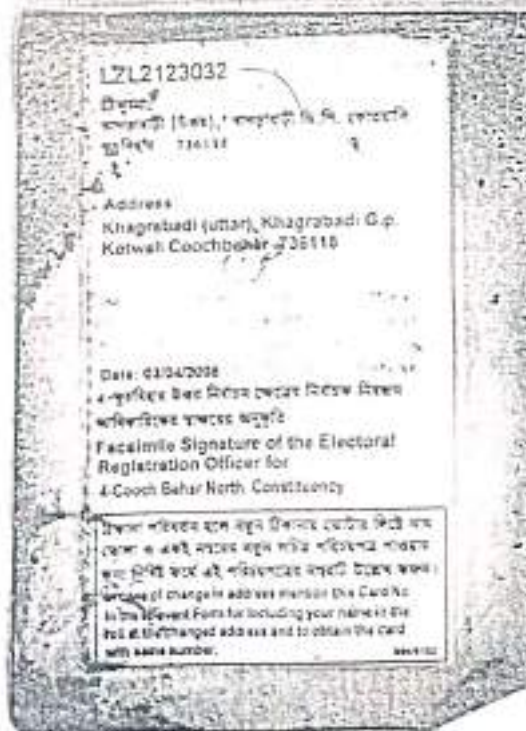 LZL2123032
ঠিকানা:
খাগড়াবাড়ী (উত্তর), খাগড়াবাড়ী জি.পি. কোতয়ালি
736118
Address
Khagrabadi (uttar), Khagrabadi G.p.
Kotwali Coochbehar 736118
Date: 03/04/2008
4-কুচবিহার উত্তর নির্বাচন ক্ষেত্রের নির্বাচক নিবন্ধন
আধিকারিকের স্বাক্ষরের অনুকৃতি
Facsimile Signature of the Electoral
Registration Officer for
4-Cooch Behar North Constituency
ঠিকানা পরিবর্তন হলে নতুন ঠিকানায় ভোটার লিষ্টে নাম
তোলা ও একই নম্বরের নতুন সচিত্র পরিচয়পত্র পাওয়ার
জন্য নির্দিষ্ট ফর্মে এই পরিচয়পত্রের নম্বরটি উল্লেখ করুন।
In case of change in address mention this Card No
in the relevant Form for including your name in the
roll at the changed address and to obtain the card
with same number.